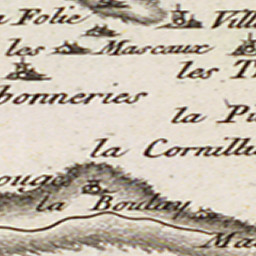 Folie Vill
les Mascaux
les T
bonneries
la Pi
la Cornill
ouge
la Boulay
Ma